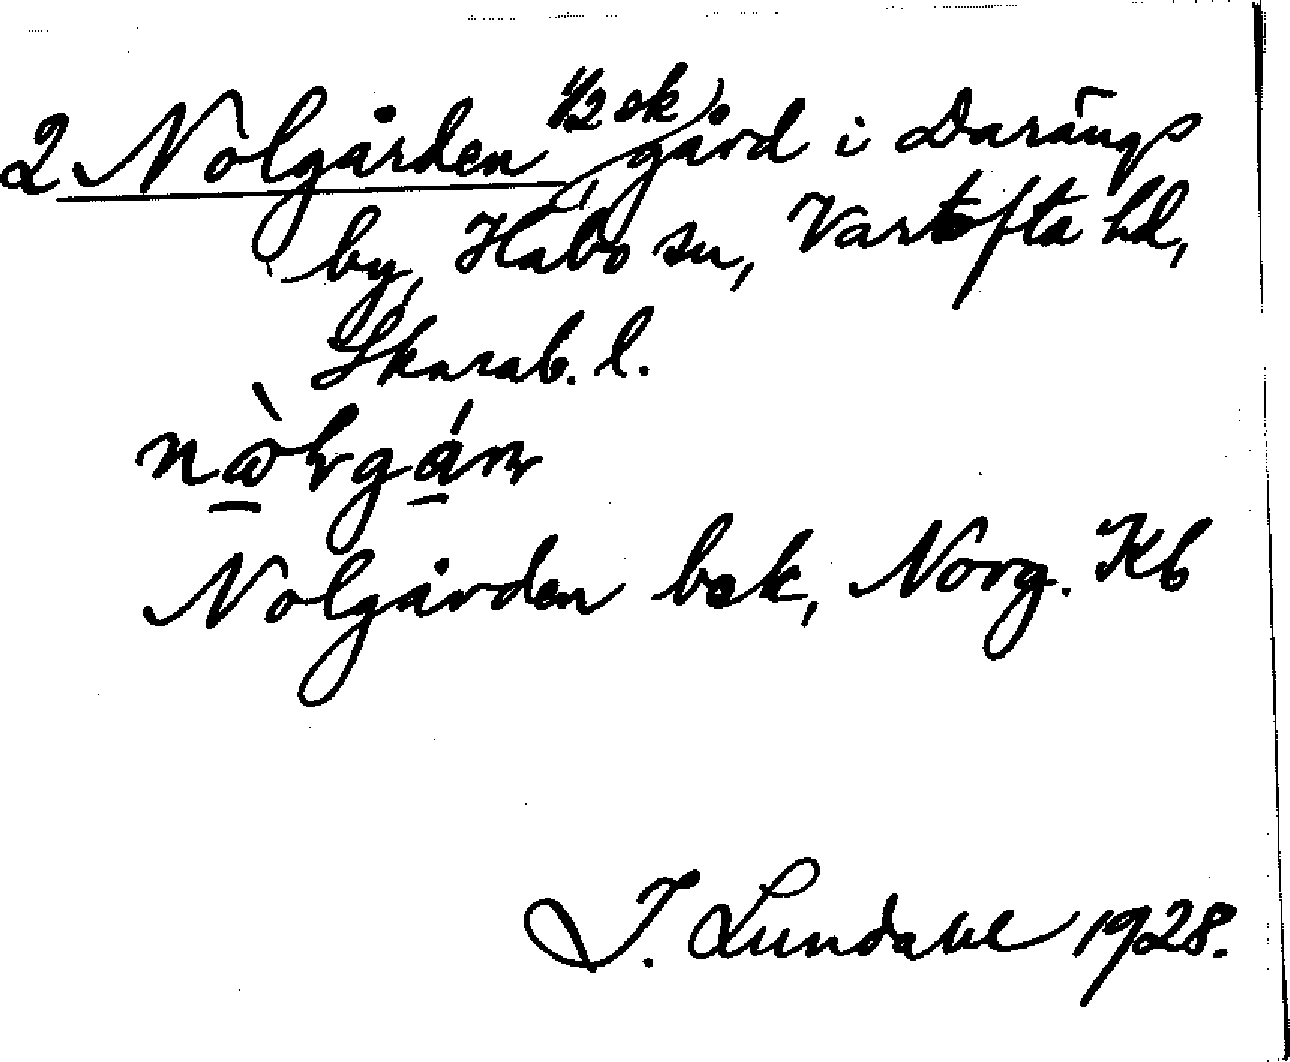 2 Nolgården, 1/2 sk gård i Darängs
by, Habo sn, Vartofta hd,
Skarab. l.
Nolgården bek, Norg. Kb
I. Lundahl 1928.